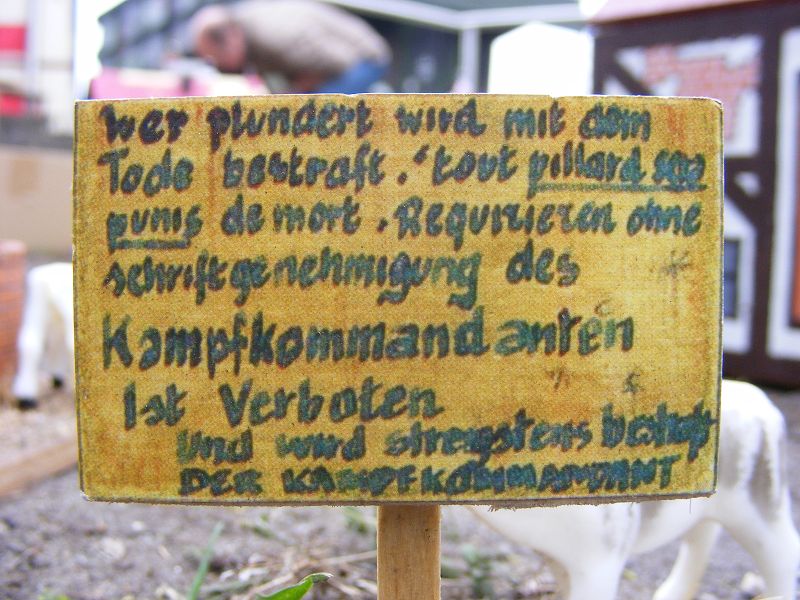 wer plündert wird mit dem
Tode bestraft. "tout pillard sera
punis de mort. Requirieren ohne
schriftgenehmigung des
Kampfkommandanten
Ist Verboten
und wird strengstens bestraft
DER KAMPFKOMMANDANT